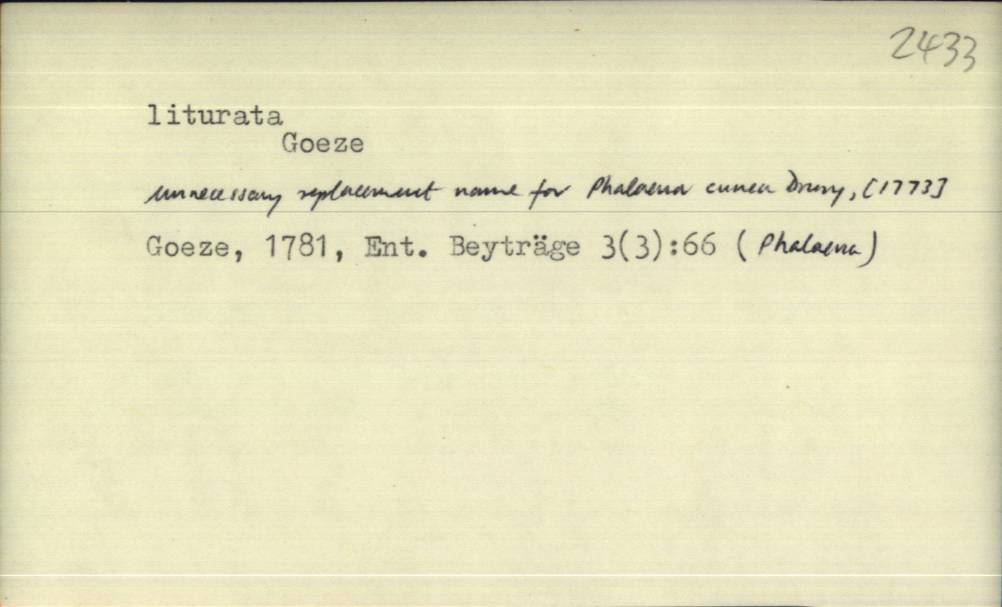 2433
liturata
Goeze
unnecessary replacement name for Phalaena cunea Drury, [1773]
Goeze, 1781, Ent. Beyträge 3(3):66 (Phalaena)